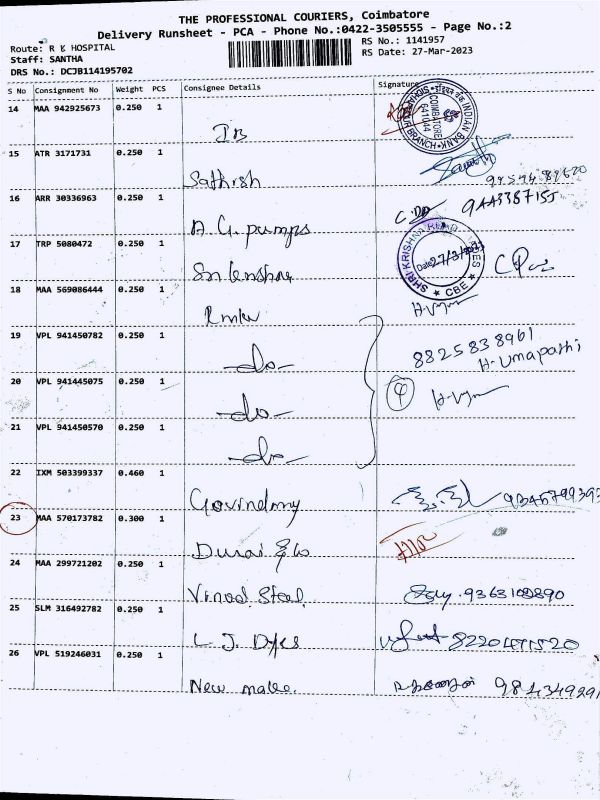 THE PROFESSIONAL COURIERS, Coimbatore
Delivery Runsheet - PCA - Phone No.:0422-3505555 - Page No.:2
Route: R K HOSPITAL
RS No.: 1141957
Staff: SANTHA
RS Date: 27-Mar-2023
DRS No.: DCJB114195702
S No Consignment No Weight PCS Consignee Details Signature
14 MAA 942925673 0.250 1
INDIAN BANK
COIMBATORE
641044
JB
15 ATR 3171731 0.250 1
Sathish
16 ARR 30336963 0.250 1
9443387155
A. G. pumps
17 TRP 5080472 0.250 1
SHRI KRISHNA
Date 27/3/2023
★ CBE ★
18 MAA 569086444 0.250 1
19 VPL 941450782 0.250 1
8825838961
H. Umapathi
-do-
20 VPL 941445075 0.250 1
4
-do-
21 VPL 941450570 0.250 1
-do-
22 IXM 503399337 0.460 1
23 MAA 570173782 0.300 1
Durai & Co
24 MAA 299721202 0.250 1
Vinod Steel
25 SLM 316492782 0.250 1
L. J. Dyes
26 VPL 519246031 0.250 1
New